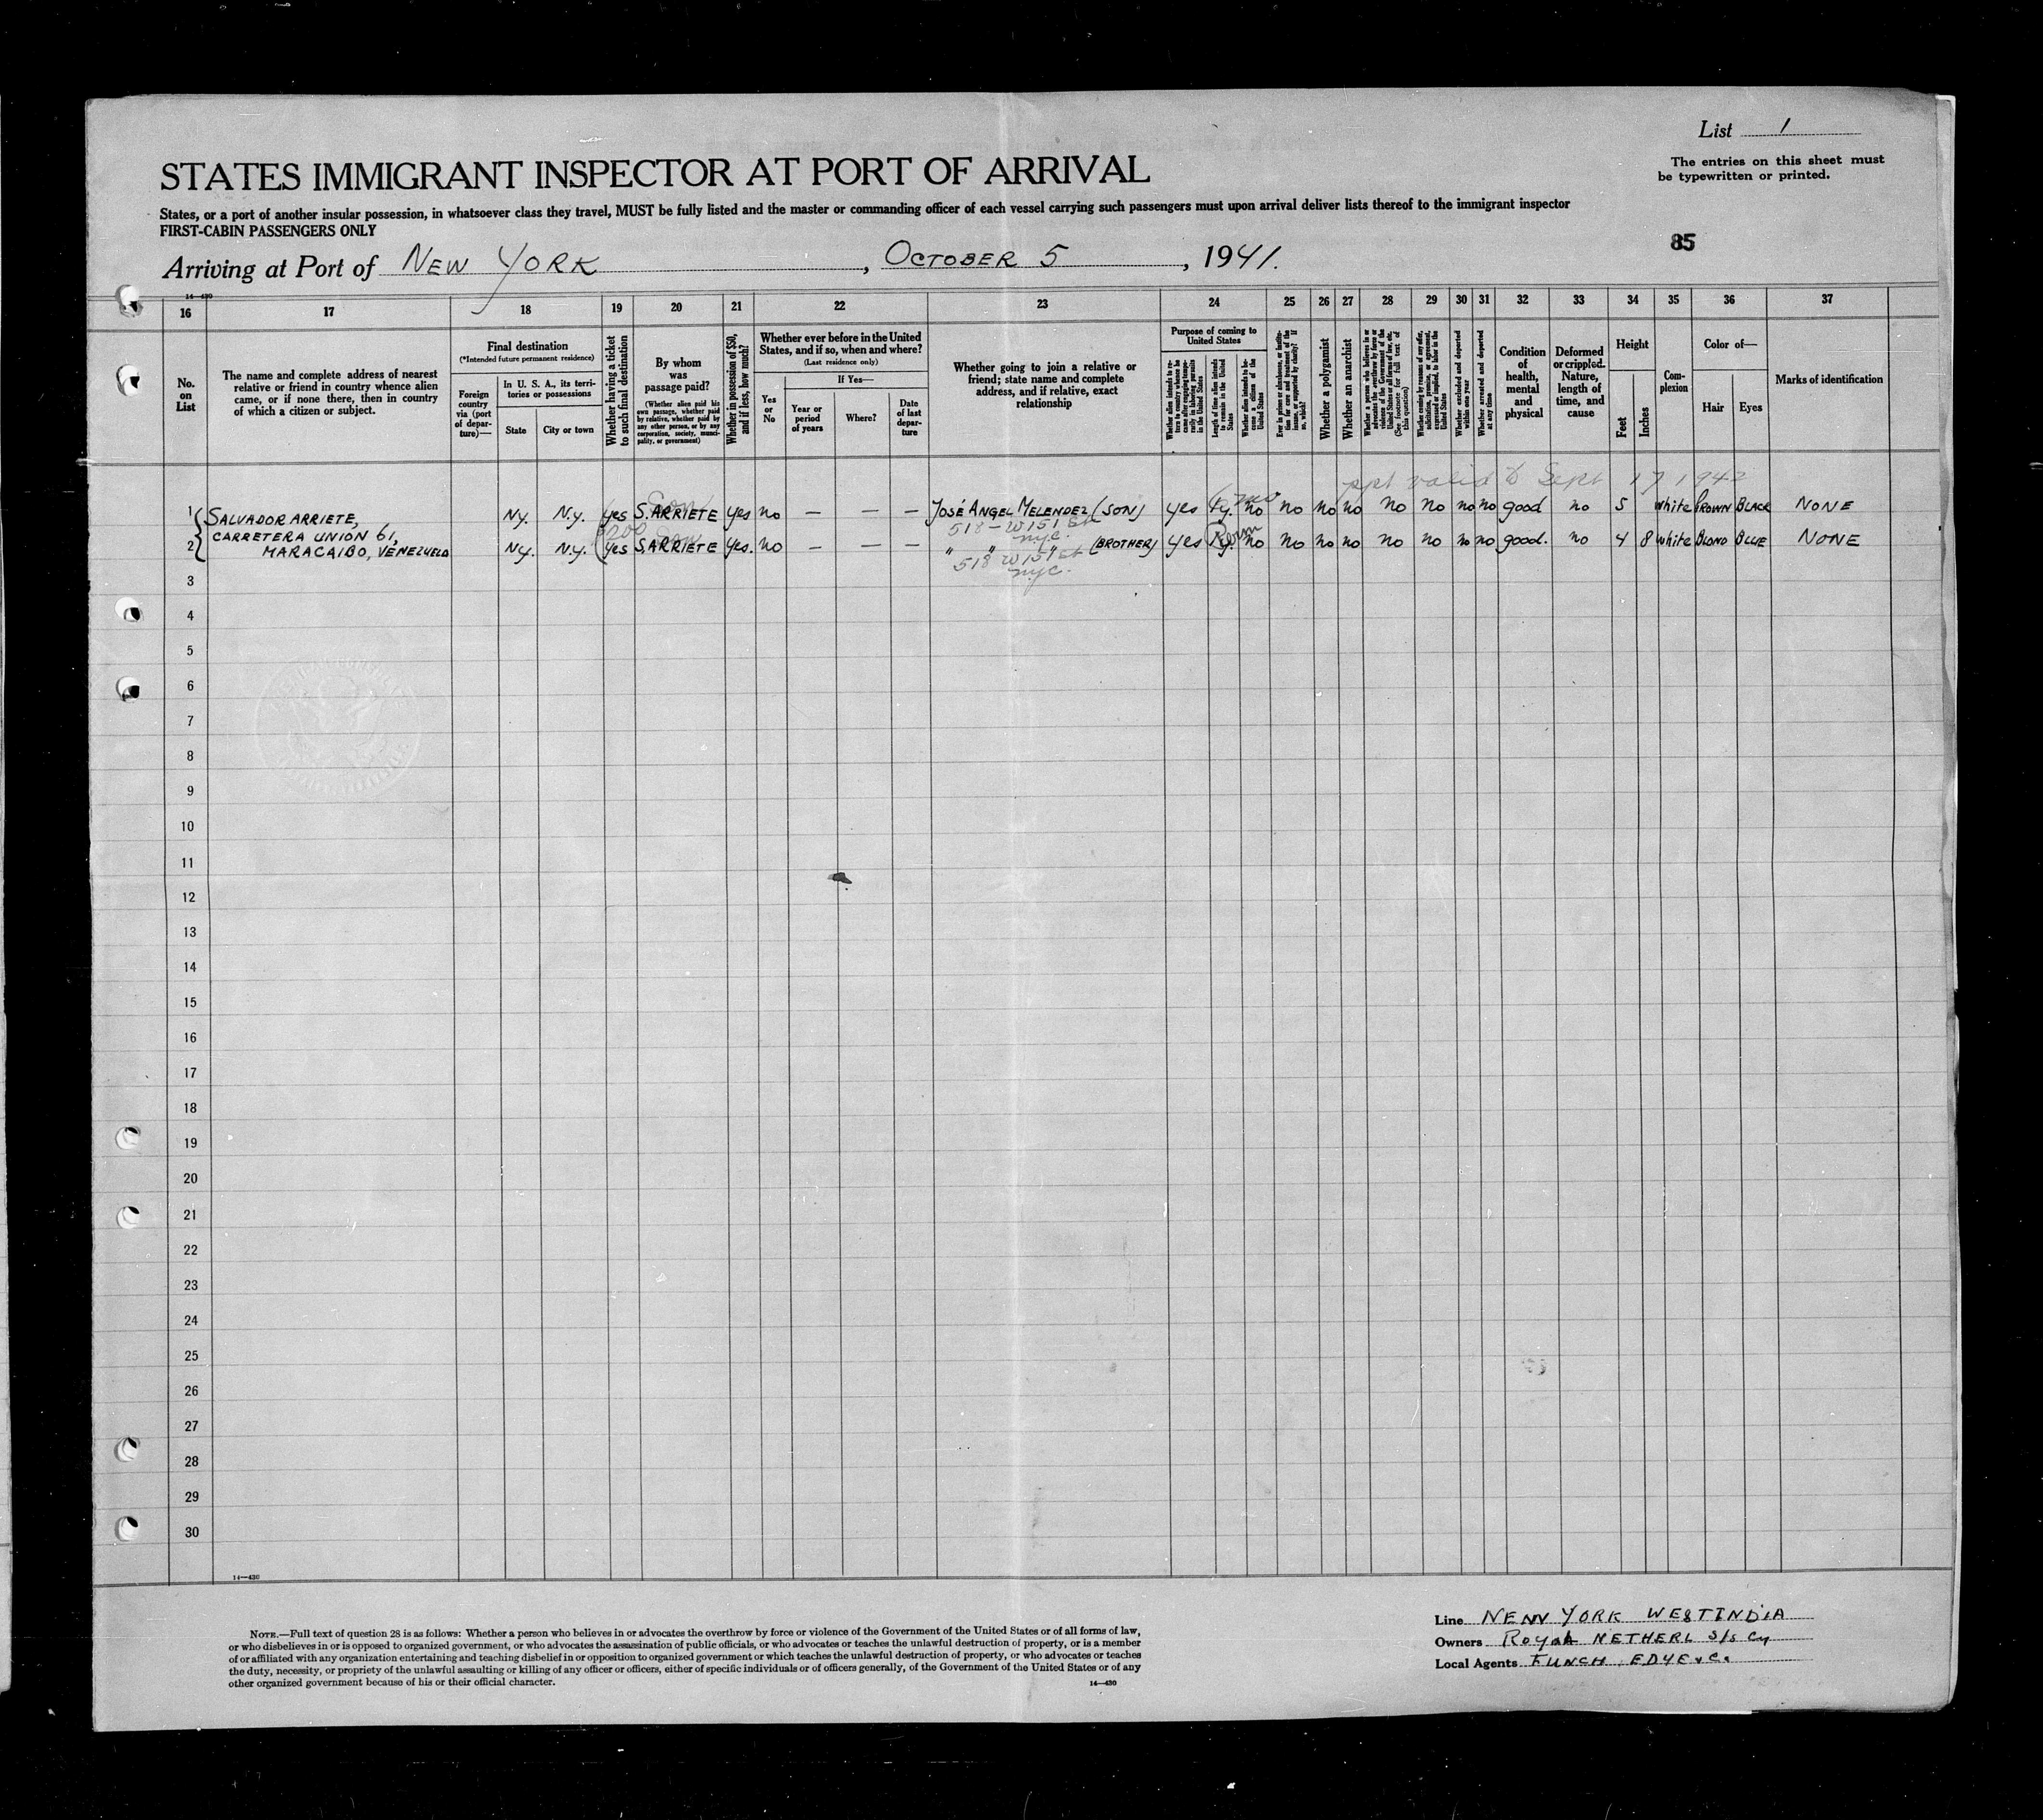 List 1
The entries on this sheet must
be typewritten or printed.
STATES IMMIGRANT INSPECTOR AT PORT OF ARRIVAL
States, or a port of another insular possession, in whatsoever class they travel, MUST be fully listed and the master or commanding officer of each vessel carrying such passengers must upon arrival deliver lists thereof to the immigrant inspector
FIRST-CABIN PASSENGERS ONLY
85
Arriving at Port of NEW YORK, OCTOBER 5, 1941.
14—430
16 17 18 19 20 21 22 23 24 25 26 27 28 29 30 31 32 33 34 35 36 37
No.
on
List
The name and complete address of nearest
relative or friend in country whence alien
came, or if none there, then in country
of which a citizen or subject.
Final destination
(*Intended future permanent residence)
Foreign
country
via (port
of depar-
ture)—
In U. S. A., its terri-
tories or possessions
State
City or town
Whether having a ticket
to such final destination
By whom
was
passage paid?
(Whether alien paid his
own passage, whether paid
by relative, whether paid by
any other person, or by any
corporation, society, munici-
pality, or government)
Whether in possession of $50,
and if less, how much?
Whether ever before in the United
States, and if so, when and where?
(Last residence only)
Yes
or
No
If Yes—
Year or
period
of years
Where?
Date
of last
depar-
ture
Whether going to join a relative or
friend; state name and complete
address, and if relative, exact
relationship
Purpose of coming to
United States
Whether alien intends to re-
turn to country whence he
came after engaging tempo-
rarily in laboring pursuits
in the United States
Length of time alien intends
to remain in the United
States
Whether alien intends to be-
come a citizen of the
United States
Ever in prison or almshouse, or institu-
tion for care and treatment of the
insane, or supported by charity? If
so, which?
Whether a polygamist
Whether an anarchist
Whether a person who believes in or
advocates the overthrow by force or
violence of the Government of the
United States or all forms of law, etc.
(See footnote for full text of
this question)
Whether coming by reason of any offer,
solicitation, promise, or agreement,
expressed or implied, to labor in the
United States
Whether excluded and deported
within one year
Whether arrested and deported
at any time
Condition
of
health,
mental
and
physical
Deformed
or crippled.
Nature,
length of
time, and
cause
Height
Feet
Inches
Com-
plexion
Color of—
Hair
Eyes
Marks of identification
ppt valid to Sept 17 1942
1 SALVADOR ARRIETE, N.y. N.y. yes S. ARRIETE yes no — — — JOSÉ ANGEL MELENDEZ (SON) yes no no no no no no no no good no 5 white BROWN BLACK NONE
CARRETERA UNION 61, 518 - W 151 St
nyc.
2 MARACAIBO, VENEZUELA N.y. N.y. $200 yes S. ARRIETE yes. no — — — " " " (BROTHER) yes no no no no no no no no good. no 4 8 white BLOND BLUE NONE
518 W 151 St
nyc.
3
4
5
6
7
8
9
10
11
12
13
14
15
16
17
18
19
20
21
22
23
24
25
26
27
28
29
30
14—430
NOTE.—Full text of question 28 is as follows: Whether a person who believes in or advocates the overthrow by force or violence of the Government of the United States or of all forms of law,
or who disbelieves in or is opposed to organized government, or who advocates the assassination of public officials, or who advocates or teaches the unlawful destruction of property, or is a member
of or affiliated with any organization entertaining and teaching disbelief in or opposition to organized government or which teaches the unlawful destruction of property, or who advocates or teaches
the duty, necessity, or propriety of the unlawful assaulting or killing of any officer or officers, either of specific individuals or of officers generally, of the Government of the United States or of any
other organized government because of his or their official character.
14—430
Line NEW YORK WESTINDIA
Owners Royal NETHERL S/S Cy
Local Agents FUNCH, EDYE & Co